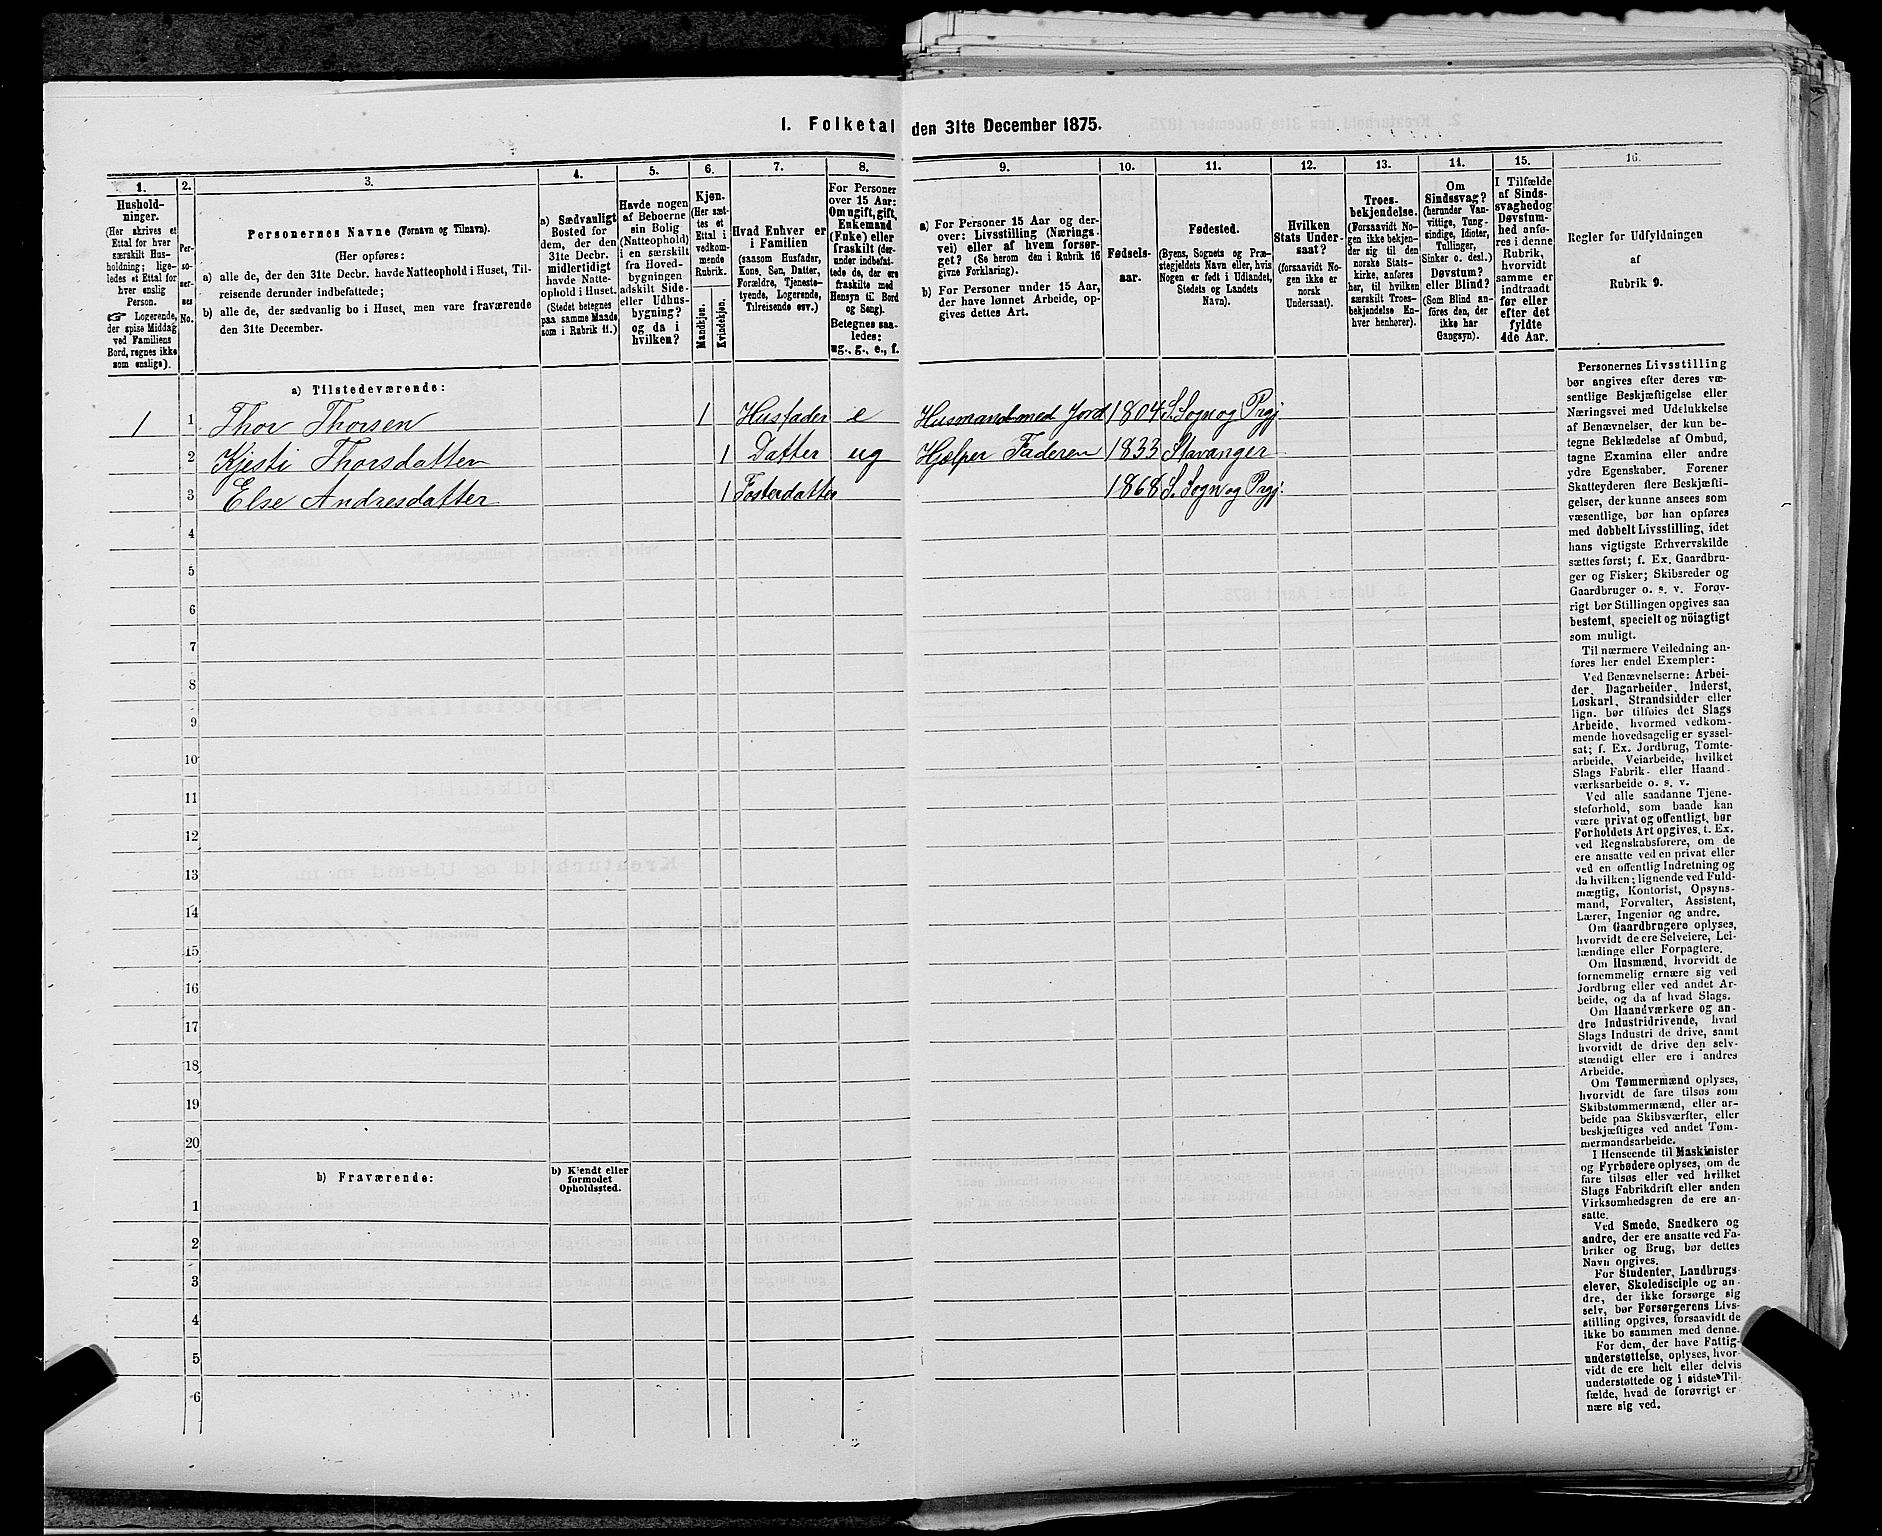 1. Folketal den 31te December 1875.
1.
Hushold-
ninger.
(Her skrives et
Ettal for hver
særskilt Hus-
holdning; lige-
ledes et Ettal for
hver enslig
Person.
☞ Logerende,
der spise Middag
ved Familiens
Bord, regnes ikke
som enslige).
2.
Per-
so-
ner-
nes
No.
3.
Personernes Navne (Fornavn og Tilnavn).
(Her opføres:
a) alle de, der den 31te Decbr. havde Natteophold i Huset, Til-
reisende derunder indbefattede;
b) alle de, der sædvanlig bo i Huset, men vare fraværende
den 31te December.
4.
a) Sædvanligt
Bosted for
dem, der den
31te Decbr.
midlertidigt
havde Natte-
ophold i Huset.
(Stedet betegnes
paa samme Maade
som i Rubrik 11.)
5.
Havde nogen
af Beboerne
sin Bolig
(Natteophold)
i en særskilt
fra Hoved-
bygningen
adskilt Side-
eller Udhus-
bygning?
og da i
hvilken?
6.
Kjøn.
(Her sæt-
tes et
Ettal i
vedkom-
mende
Rubrik.
Mandkjøn.
Kvindekjøn.
7.
Hvad Enhver er
i Familien
(saasom Husfader,
Kone, Søn, Datter,
Forældre, Tjeneste-
tyende, Logerende,
Tilreisende osv.)
8.
For Personer
over 15 Aar:
Om ugift, gift,
Enkemand
(Enke) eller
fraskilt (der-
under indbefat-
tede de, der ere
fraskilte med
Hensyn til Bord
og Seng).
Betegnes saa-
ledes:
ug., g., e., f.
9.
a) For Personer 15 Aar og der-
over: Livsstilling (Nærings-
vei) eller af hvem forsør-
get? (Se herom den i Rubrik 16
givne Forklaring).
b) For Personer under 15 Aar,
der have lønnet Arbeide, op-
gives dettes Art.
10.
Fødsels-
aar.
11.
Fødested.
(Byens, Sognets og Præ-
stegjeldets Navn eller, hvis
Nogen er født i Udlandet,
Stedets og Landets
Navn).
12.
Hvilken
Stats Under-
saat?
(forsaavidt No-
gen ikke er
norsk
Undersaat).
13.
Troes-
bekjendelse.
(Forsaavidt No-
gen ikke bekjen-
der sig til den
norske Stats-
kirke, anføres
her, til hvilken
særskilt Troes-
bekjendelse En-
hver henhører).
14.
Om
Sindssvag?
(herunder Van-
vittige, Tung-
sindige, Idioter,
Tullinger,
Sinker o. desl.)
Døvstum?
eller Blind?
(Som Blind an-
føres den, der
ikke har
Gangsyn).
15.
I Tilfælde
af Sinds-
svaghed og
Døvstum-
hed anfø-
res i denne
Rubrik,
hvorvidt
samme er
indtraadt
før eller
efter det
fyldte
4de Aar.
16.
Regler for Udfyldningen
af
Rubrik 9.
a) Tilstedeværende:
1 1 Thor Thorsen 1 Husfader e Husmand med Jord 1804 S. Sogn og Prgj.
2 Kjesti Thorsdatter 1 Datter ug Hjelper Faderen 1833 Stavanger
3 Else Andresdatter 1 Fosterdatter 1868 S. Sogn og Prgj.
4
5
6
7
8
9
10
11
12
13
14
15
16
17
18
19
20
b) Fraværende:
b) Kjendt eller
formodet
Opholdssted.
1
2
3
4
5
6
Personernes Livsstilling
bør angives efter deres væ-
sentlige Beskjæftigelse eller
Næringsvei med Udelukkelse
af Benævnelser, der kun be-
tegne Beklædelse af Ombud,
tagne Examina eller andre
ydre Egenskaber. Forener
Skatteyderen flere Beskjæfti-
gelser, der kunne ansees som
væsentlige, bør han opføres
med dobbelt Livsstilling, idet
hans vigtigste Erhvervskilde
sættes først; f. Ex. Gaardbru-
ger og Fisker; Skibsreder og
Gaardbruger o. s. v. Forøv-
rigt bør Stillingen opgives saa
bestemt, specielt og nöiagtigt
som muligt.
Til nærmere Veiledning an-
føres her endel Exempler:
Ved Benævnelserne: Arbei-
der, Dagarbeider, Inderst,
Løskarl, Strandsidder eller
lign. bør tilføies det Slags
Arbeide, hvormed vedkom-
mende hovedsagelig er syssel-
sat; f. Ex. Jordbrug, Tomte-
arbeide, Veiarbeide, hvilket
Slags Fabrik- eller Haand-
værksarbeide o. s. v.
Ved alle saadanne Tjene-
steforhold, som baade kan
være privat og offentligt, bør
Forholdets Art opgives, t. Ex.
ved Regnskabsførere, om de
ere ansatte ved en privat eller
ved en offentlig Indretning og
da hvilken; lignende ved Fuld-
mægtig, Kontorist, Opsyns-
mand, Forvalter, Assistent,
Lærer, Ingeniør og andre.
Om Gaardbrugere oplyses,
hvorvidt de ere Selveiere, Lei-
lændinge eller Forpagtere.
Om Husmænd, hvorvidt de
fornemmelig ernære sig ved
Jordbrug eller ved andet Ar-
beide, og da af hvad Slags.
Om Haandværkere og an-
dre Industridrivende, hvad
Slags Industri de drive, samt
hvorvidt de drive den selv-
stændigt eller ere i andres
Arbeide.
Om Tømmermænd oplyses,
hvorvidt de fare tilsøs som
Skibstømmermænd, eller ar-
beide paa Skibsværfter, eller
beskjæftiges ved andet Tøm-
mermandsarbeide.
I Henseende til Maskinister
og Fyrbødere oplyses, om de
fare tilsøs eller ved hvilket
Slags Fabrikdrift eller anden
Virksomhedsgren de ere an-
satte.
Ved Smede, Snedkere og
andre, der ere ansatte ved Fa-
briker og Brug, bør dettes
Navn opgives.
For Studenter, Landbrugs-
elever, Skoledisciple og an-
dre, der ikke forsørge sig
selv, bør Forsørgerens Livs-
stilling opgives, forsaavidt de
ikke bo sammen med denne.
For dem, der have Fattig-
understøttelse, oplyses, hvor-
vidt de ere helt eller delvis
understøttede og i sidste Til-
fælde, hvad de forøvrigt er
nære sig ved.